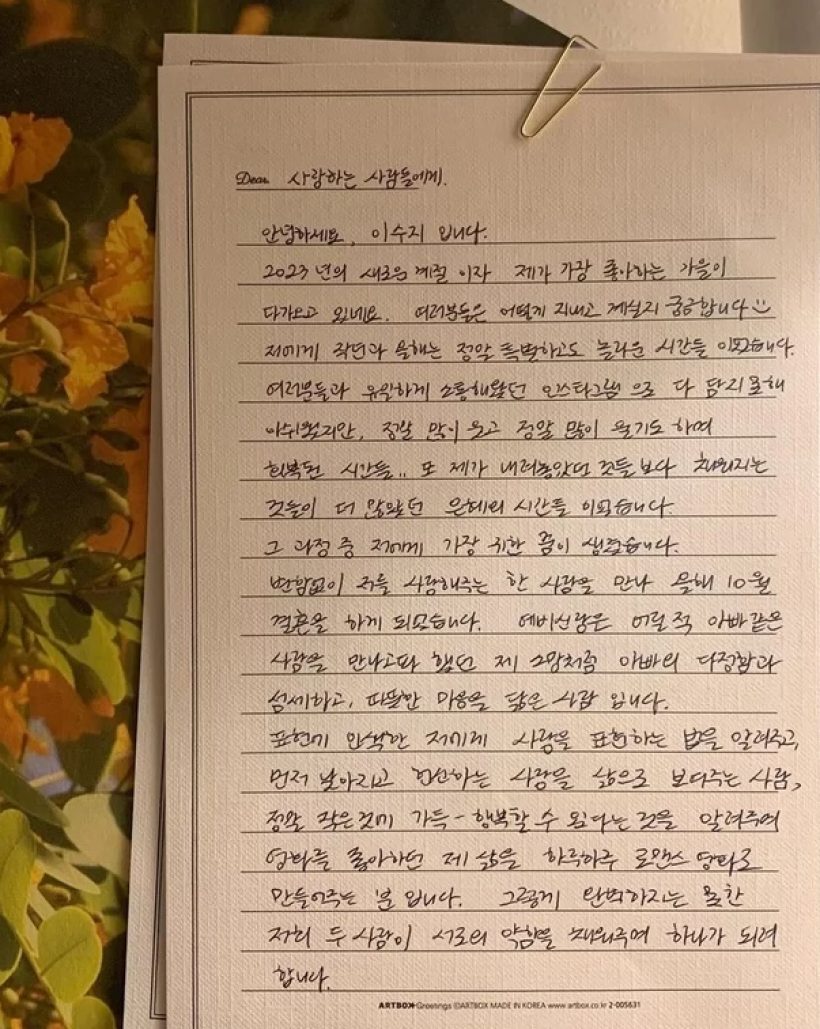 Dear. 사랑하는 사람들에게.
안녕하세요, 이수지 입니다.
2023년의 새로운 계절 이자 제가 가장 좋아하는 가을이
다가오고 있네요. 여러분들은 어떻게 지내고 계실지 궁금합니다
저에게 작년과 올해는 정말 특별하고도 놀라운 시간들 이었습니다.
여러분들과 유일하게 소통해왔던 인스타그램 으로 다 담지 못해
아쉬웠지만, 정말 많이 웃고 정말 많이 울기도 하며
회복된 시간들.. 또 제가 내려놓았던 것들 보다 채워지는
것들이 더 많았던 은혜의 시간들 이었습니다.
그 과정 중 저에게 가장 귀한 꿈이 생겼습니다.
변함없이 저를 사랑해주는 한 사람을 만나 올해 10월
결혼을 하게 되었습니다. 예비신랑은 어릴적 아빠같은
사람을 만나고파 했던 제 소망처럼 아빠의 다정함과
섬세하고, 따뜻한 마음을 닮은 사람 입니다.
표현에 인색한 저에게 사랑을 표현하는 법을 알려주고,
먼저 낮아지고 헌신하는 사랑을 삶으로 보여주는 사람,
정말 작은것에 가득-행복할 수 있다는 것을 알려주며
영화를 좋아하던 제 삶을 하루하루 로맨스 영화로
만들어주는 분 입니다. 그렇게 완벽하지는 못한
저희 두 사람이 서로의 약함을 채워주며 하나가 되려
합니다.
ARTBOX Greetings ©ARTBOX MADE IN KOREA www.artbox.co.kr 2-005631